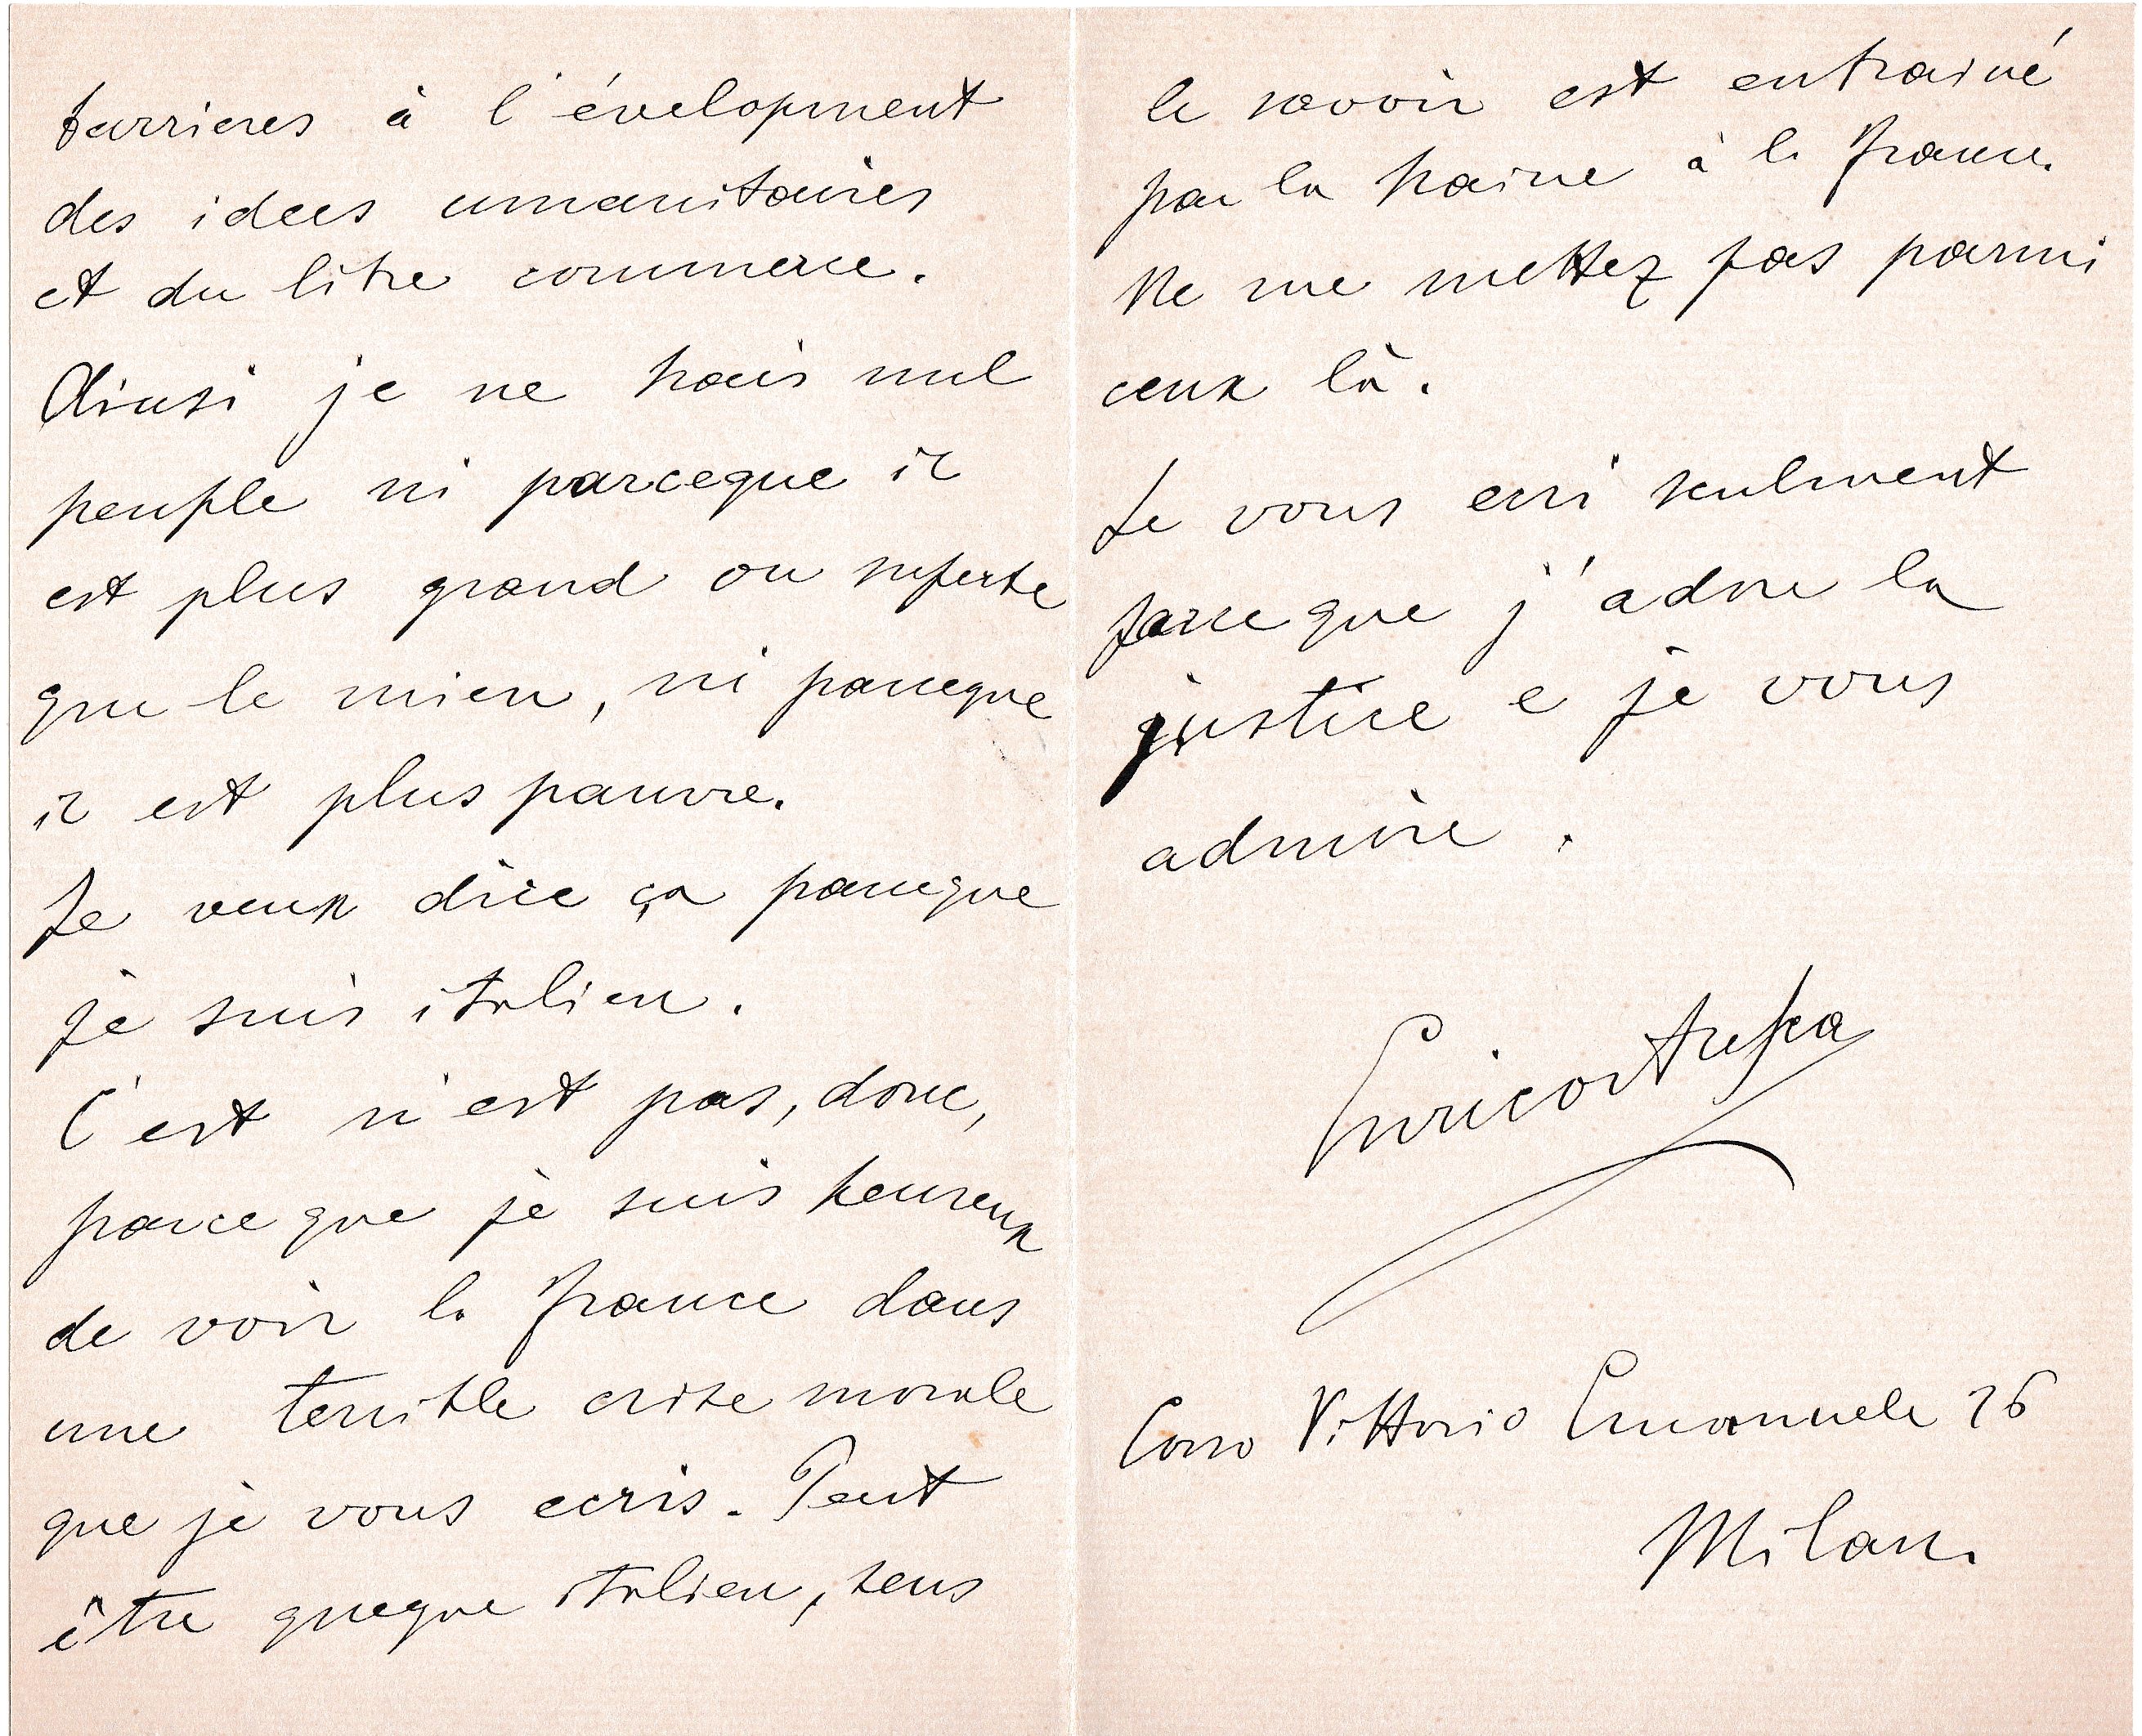 barrieres à l'évelopment
des idees umanitaires
et du libre commerce.
Ainsi je ne hais nul
peuple ni parceque il
est plus grand ou superbe
que le mien, ni parceque
il est plus pauvre.
Je veux dire ça parceque
je suis italien.
C'est n'est pas, donc,
parce que je suis heureux
de voir la france dans
une terrible crise morale
que je vous ecris. Peut
être queque italien, sens
le savoir est entrainé
par la haine à la france.
Ne me mettez pas parmi
ceux là.
Je vous ecri seulment
parce que j'adore la
justice e je vous
admire.
Enrico
Corso Vittorio Emanuele 26
Milan.